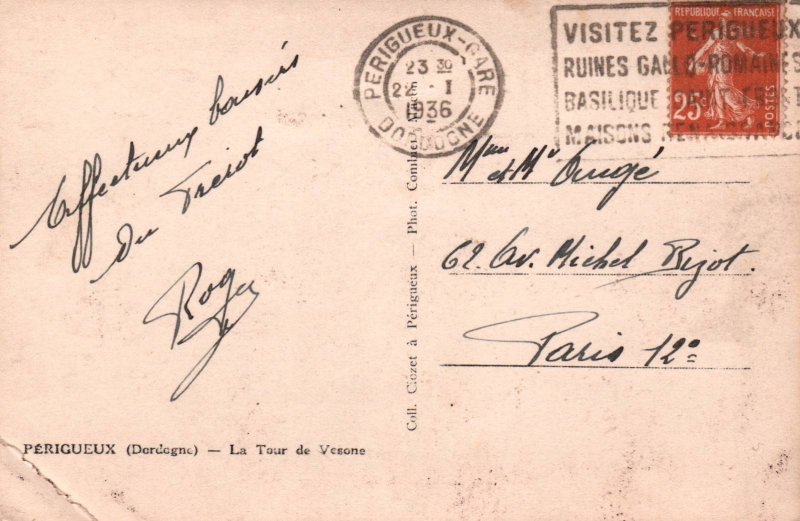 Affectueux baisers
Du Frérot
Roger
PÉRIGUEUX (Dordogne) — La Tour de Vesone
Coll. Clozet à Périgueux — Phot. Combier Macon
PERIGUEUX-GARE
23 30
I
1936
DORDOGNE
VISITEZ PERIGUEUX
RUINES GALLO-ROMAINES
BASILIQUE
MAISONS RENAISSANCE
REPUBLIQUE FRANÇAISE
25c
POSTES
Mme et Mr Augé
62. Av. Michel Bizot.
Paris 12e